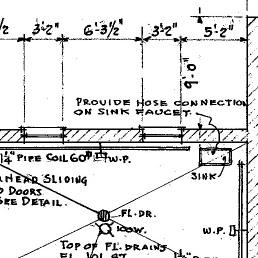 3'-2" 6'-3½" 3'-2" 5'-2"
9'-0"
PROVIDE HOSE CONNECTION
ON SINK FAUCET.
¼" PIPE COIL 60" W.P.
SINK
HEAD SLIDING
DOORS
DETAIL.
FL. DR.
W.P.
TOP OF FL. DRAINS